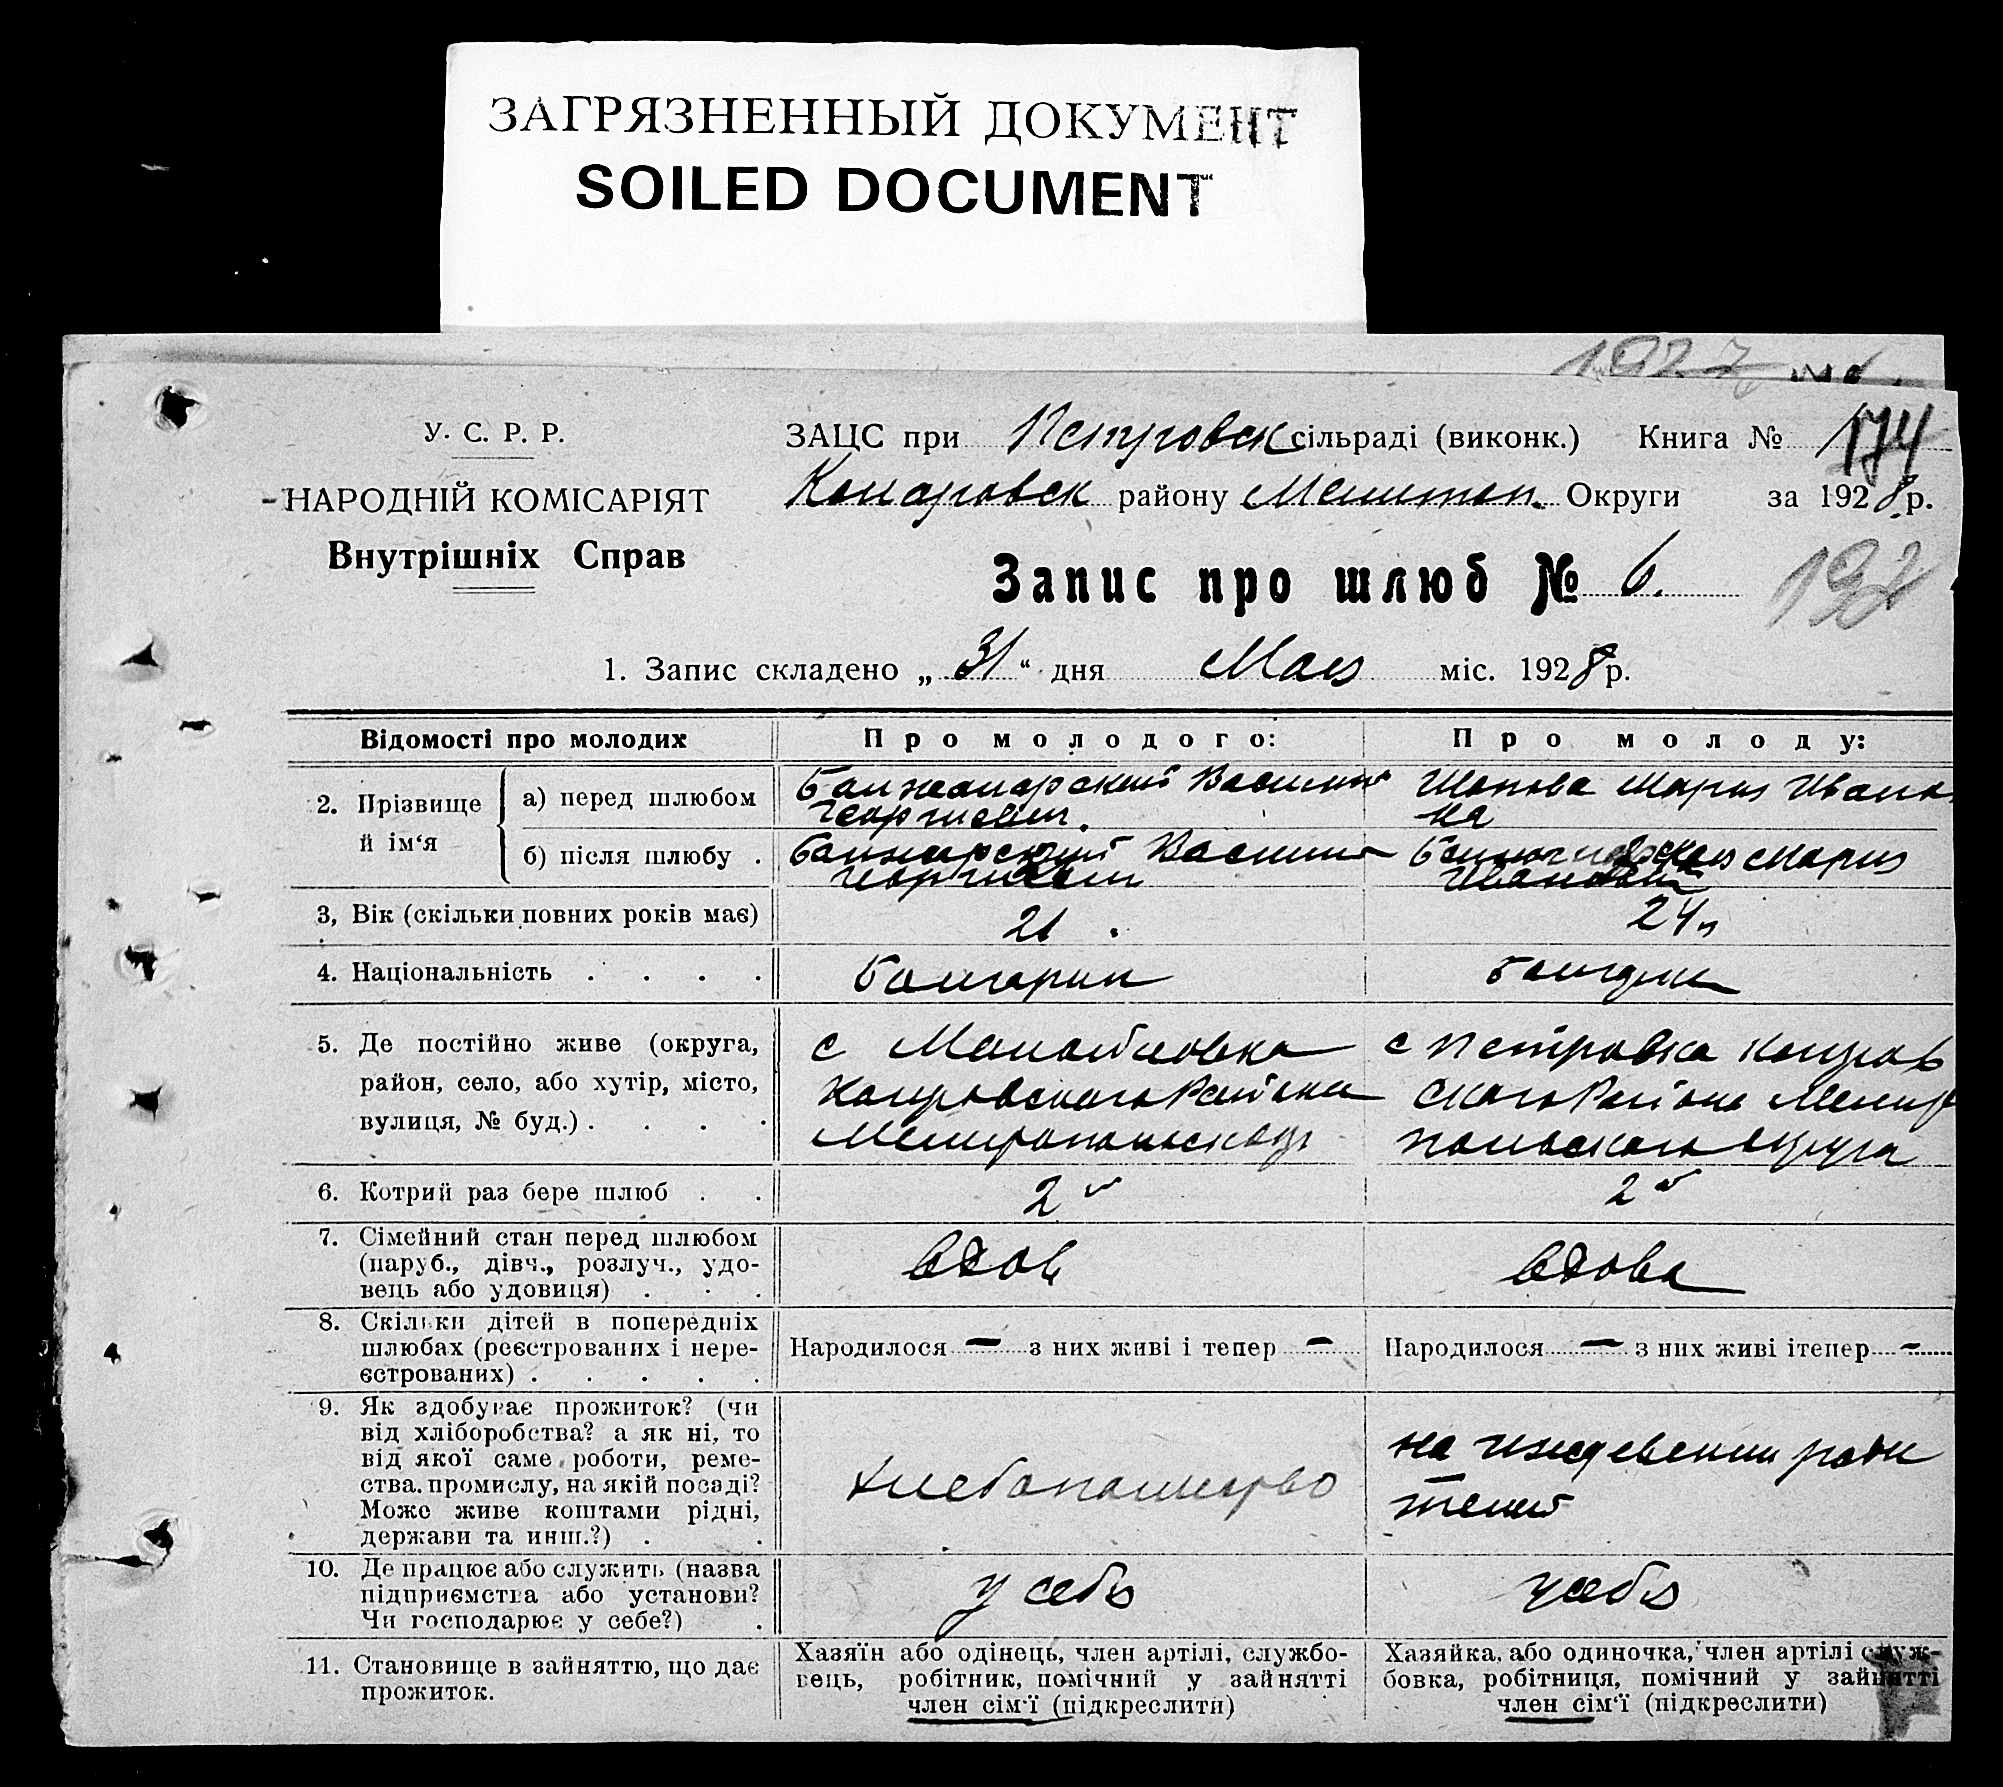 ЗАГРЯЗНЕННЫЙ ДОКУМЕНТ
SOILED DOCUMENT
1927
У. С. Р. Р.
НАРОДНІЙ КОМІСАРІЯТ
Внутрішніх Справ
ЗАЦС при Петровск сільраді (виконк.) Книга № 174
району Округи за 1928 р.
Запис про шлюб № 6.
1. Запис складено „ 31 “ дня Мая міс. 1928 р.
Відомості про молодих
Про молодого:
Про молоду:
2. Прізвище й ім‘я
а) перед шлюбом
Василий
Георгиевич.
Мария Ивановна
б) після шлюбу .
Василий
Георгиевич
Мария
Ивановна
3, Вік (скільки повних років має)
21
24
4. Національність . . . .
Болгарин
5. Де постійно живе (округа,
район, село, або хутір, місто,
вулиця, № буд.) . . . .
с
Района
с Петровка
Района
округа
6. Котрий раз бере шлюб . .
2й
2й
7. Сімейний стан перед шлюбом
(паруб., дівч., розлуч., удо-
вець або удовиця) . . .
вдов
вдова
8. Скільки дітей в попередніх
шлюбах (реєстрованих і нере-
єстрованих) . . . . .
Народилося — з них живі і тепер —
Народилося — з них живі ітепер —
9. Як здобуває прожиток? (чи
від хліборобства? а як ні, то
від якої саме роботи, реме-
ства, промислу, на якій посаді?
Може живе коштами рідні,
держави та инш.?) . .
хлебопашество
на иждевении роди
телей
10. Де працює або служить (назва
підприємства або установи?
Чи господарює у себе?) .
у себя
у себя
11. Становище в зайняттю, що дає
прожиток.
Хазяїн або одінець, член артілі, службо-
вець, робітник, помічний у зайнятті
член сім‘ї (підкреслити)
Хазяйка, або одиночка, член артілі служ-
бовка, робітниця, помічний у зайнятті
член сім‘ї (підкреслити)